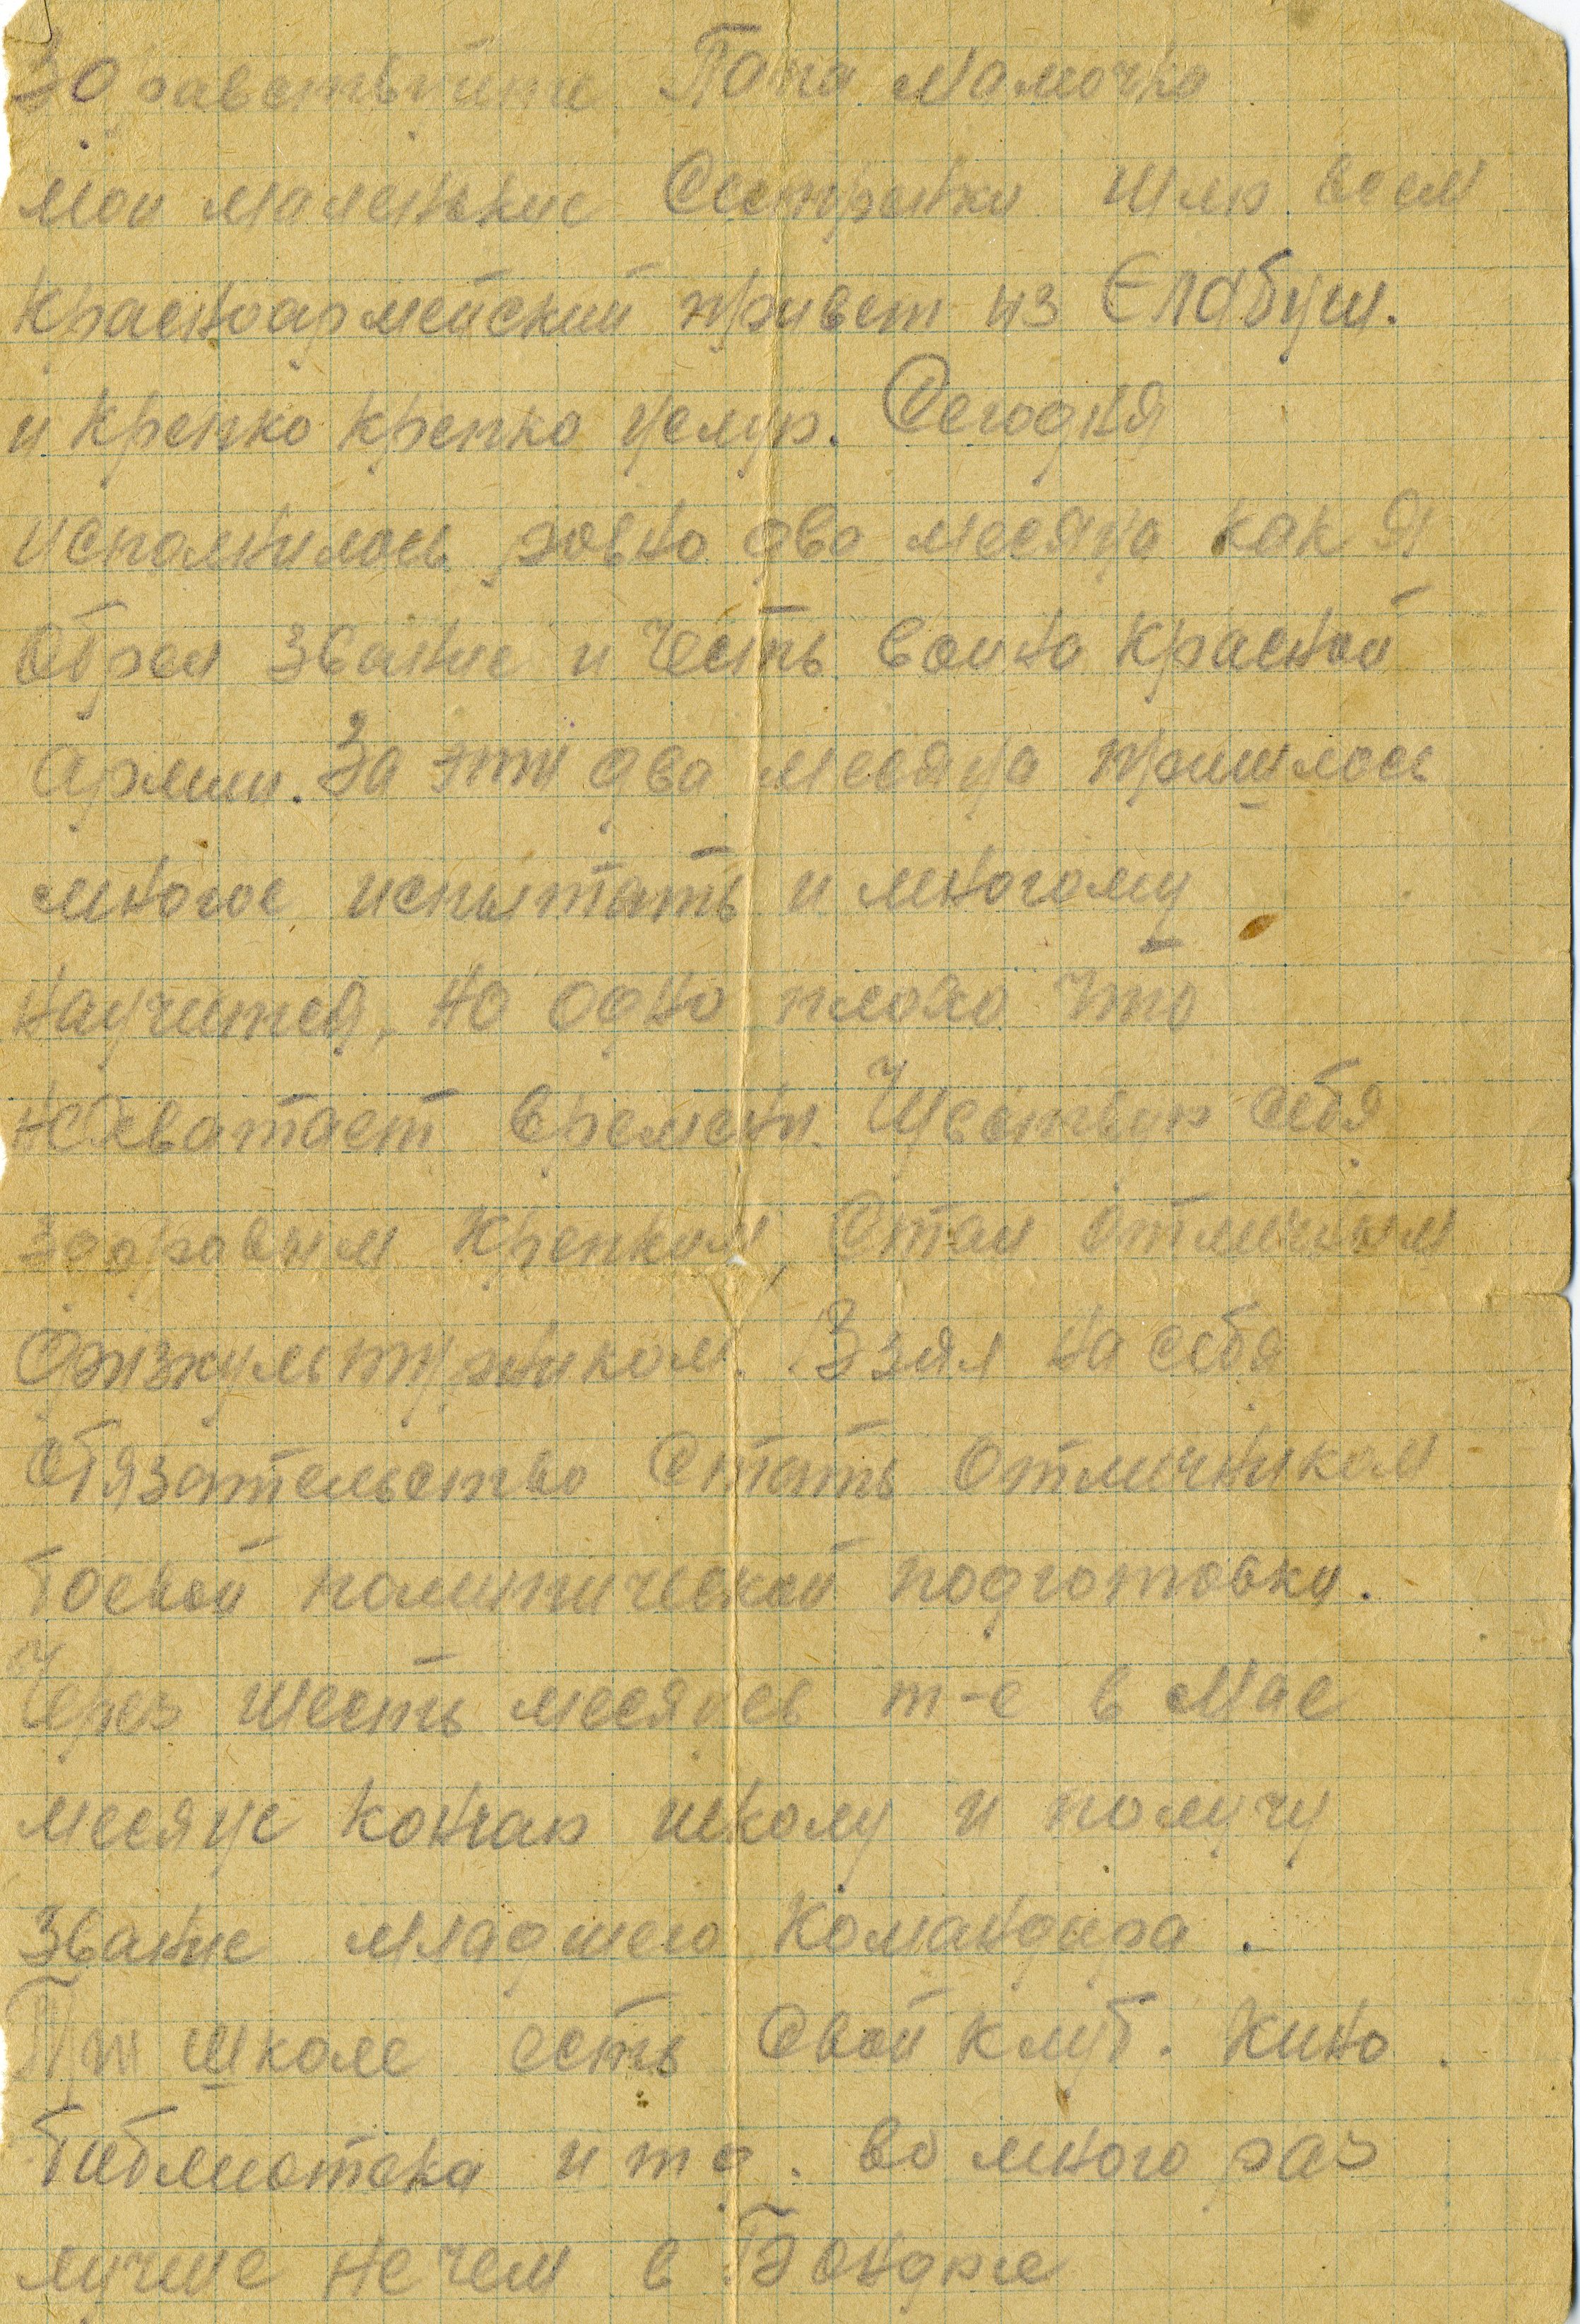 Здравствуйте Папа Мамочка
мои маленькие Сестренки шлю всем
Красноармейский привет из Елабуги.
и Крепко крепко целую. Сегодня
исполнилось ровно два месяца как Я
Обрел звание и Честь воина Красной
Армии. За эти два месяца пришлось
многое испытать и многому
научится, но одно плохо что
нехватает времени. Чувствую себя
здоровым Крепким, Стал отличным
Физкультурником. Взял на себя
обязательство Стать отличником
боевой политической подготовки.
Через шесть месяцев т-е в Мае
месяце кончаю школу и получу
Звание младшего Командира.
При школе есть Свой клуб. Кино.
библиотека и т д. во много раз
лучше нечем в Бондюге